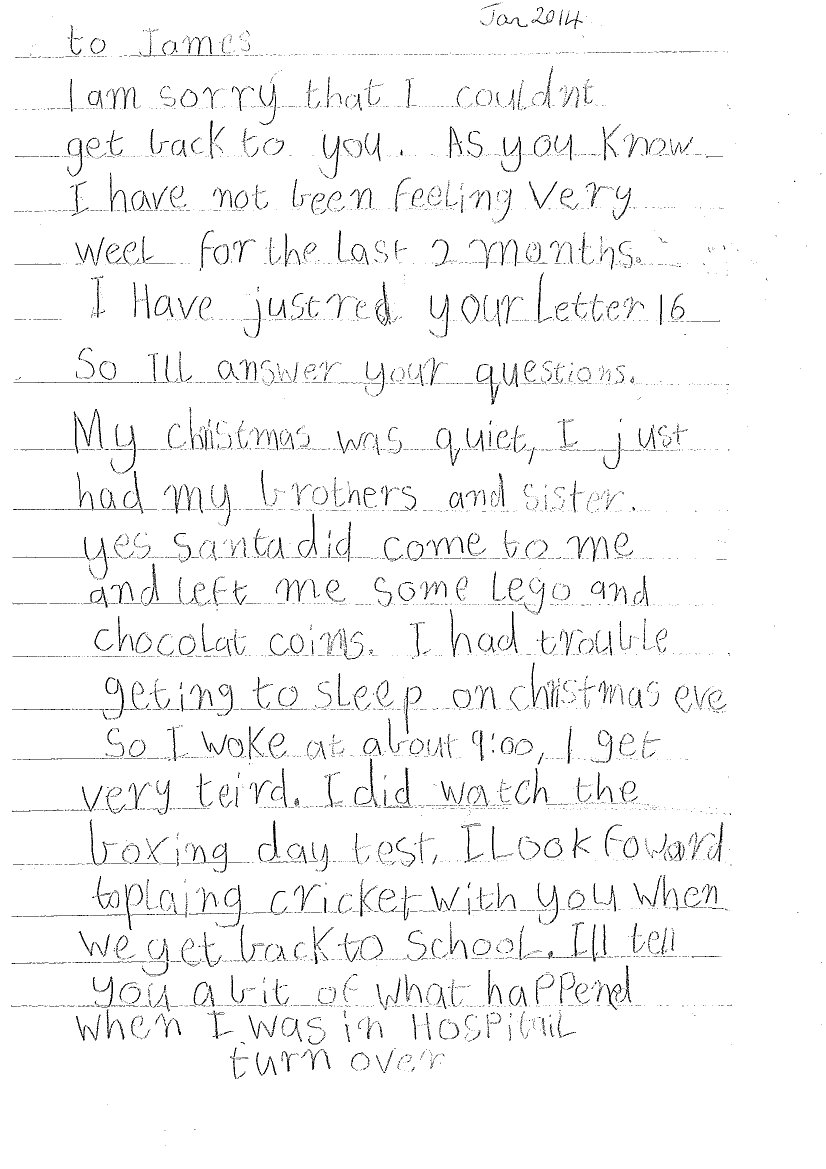 Jan 2014
to James
I am sorry that I couldnt
get back to you. As you know
I have not been feeling very
weel for the last 2 months.
I Have just red your Letter 16
So Ill answer your questions.
My christmas was quiet, I just
had my brothers and sister.
yes santa did come to me
and left me some Lego and
chocolat coins. I had trouble
geting to sleep on christmas eve
So I woke at about 9:00, I get
very teird. I did watch the
boxing day test, I Look foward
to plaing cricket with you when
we get back to school. I'll tell
you a bit of what happend
when I was in Hospitail
turn over